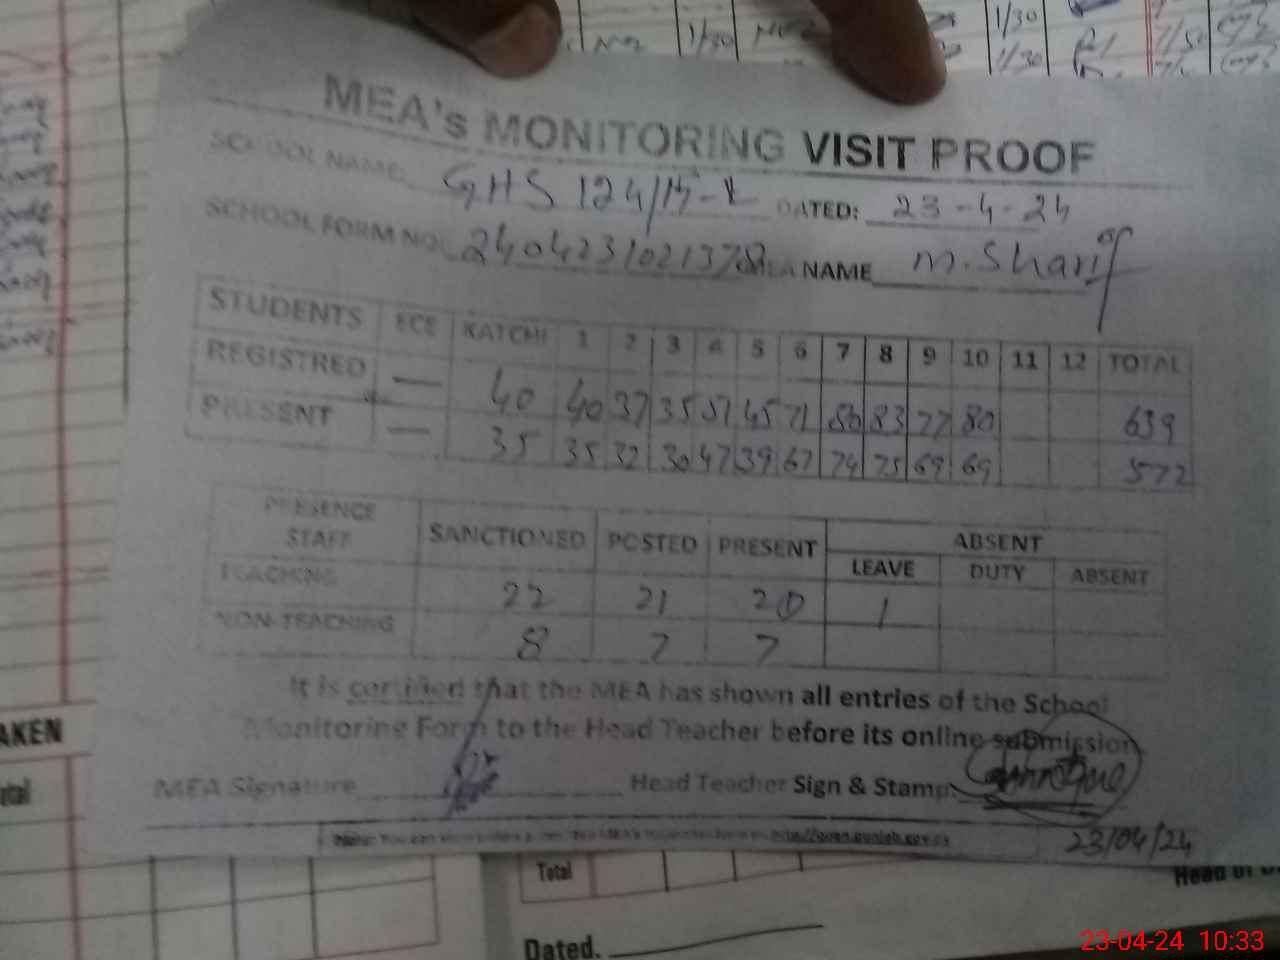 1/30
1/30
MEA's MONITORING VISIT PROOF
SCHOOL NAME: GHS 124/15-L DATED: 23-4-24
SCHOOL FORM NO. 2404231021378 MEA NAME M. Sharif
STUDENTS ECE KATCHI 1 2 3 4 5 6 7 8 9 10 11 12 TOTAL
REGISTRED — 40 40 37 35 51 45 71 80 83 77 80 639
PRESENT — 35 35 32 30 47 39 67 74 75 69 69 572
PRESENCE STAFF SANCTIONED POSTED PRESENT ABSENT
LEAVE DUTY ABSENT
TEACHING 22 21 20 1
NON-TEACHING 8 7 7
It is certified that the MEA has shown all entries of the School
Monitoring Form to the Head Teacher before its online submission
MEA Signature Head Teacher Sign & Stamp
23/04/24
AKEN
Total
Dated.
23-04-24 10:33